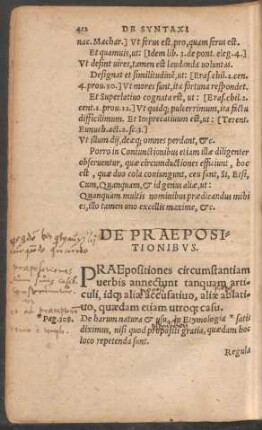 412 DE SYNTAXI
nac. Machar.] Vt serus est, pro, quam serus est.
Et quamuis, ut: [Idem lib. 3. de pont. eleg. 4.]
Vt desint uires, tamen est laudanda uoluntas.
Designat et similitudinē, ut: [Eras. chil. 2. cen.
4. prou. 30.] Vt mores sunt, ita fortuna respondet.
Et Superlatiuo cognata est, ut: [Eras. chil. 2.
cent. 1. prou. 12.] Vt quidq; pulcerrimum, ita factu
difficillimum. Et Imprecatiuum est, ut: [Terent.
Eunuch. act. 2. sc. 3.]
Vt illum dij, deæq; omnes perdant, &c.
Porro in Coniunctionibus etiam illa diligenter
obseruentur, quæ circunductiones efficiunt, hoc
est, quæ duo cola coniungunt, ceu sunt, Si, Etsi,
Cum, Quanquam, & id genus aliæ, ut:
Quanquam multis nominibus prædicandus mihi
es, illo tamen uno excellis maxime, &c.
DE PRAEPOSI-
TIONIBVS.
PRAEpositiones circumstantiam
uerbis annectunt tanquam arti-
culi, idq; aliæ accusatiuo, aliæ ablati-
uo, quædam etiam utroq; casu.
*Pag. 108. De harum natura & usu, in Etymologia * satis
diximus, nisi quod propositi gratia, quædam hoc
loco repetenda sunt.
Regula